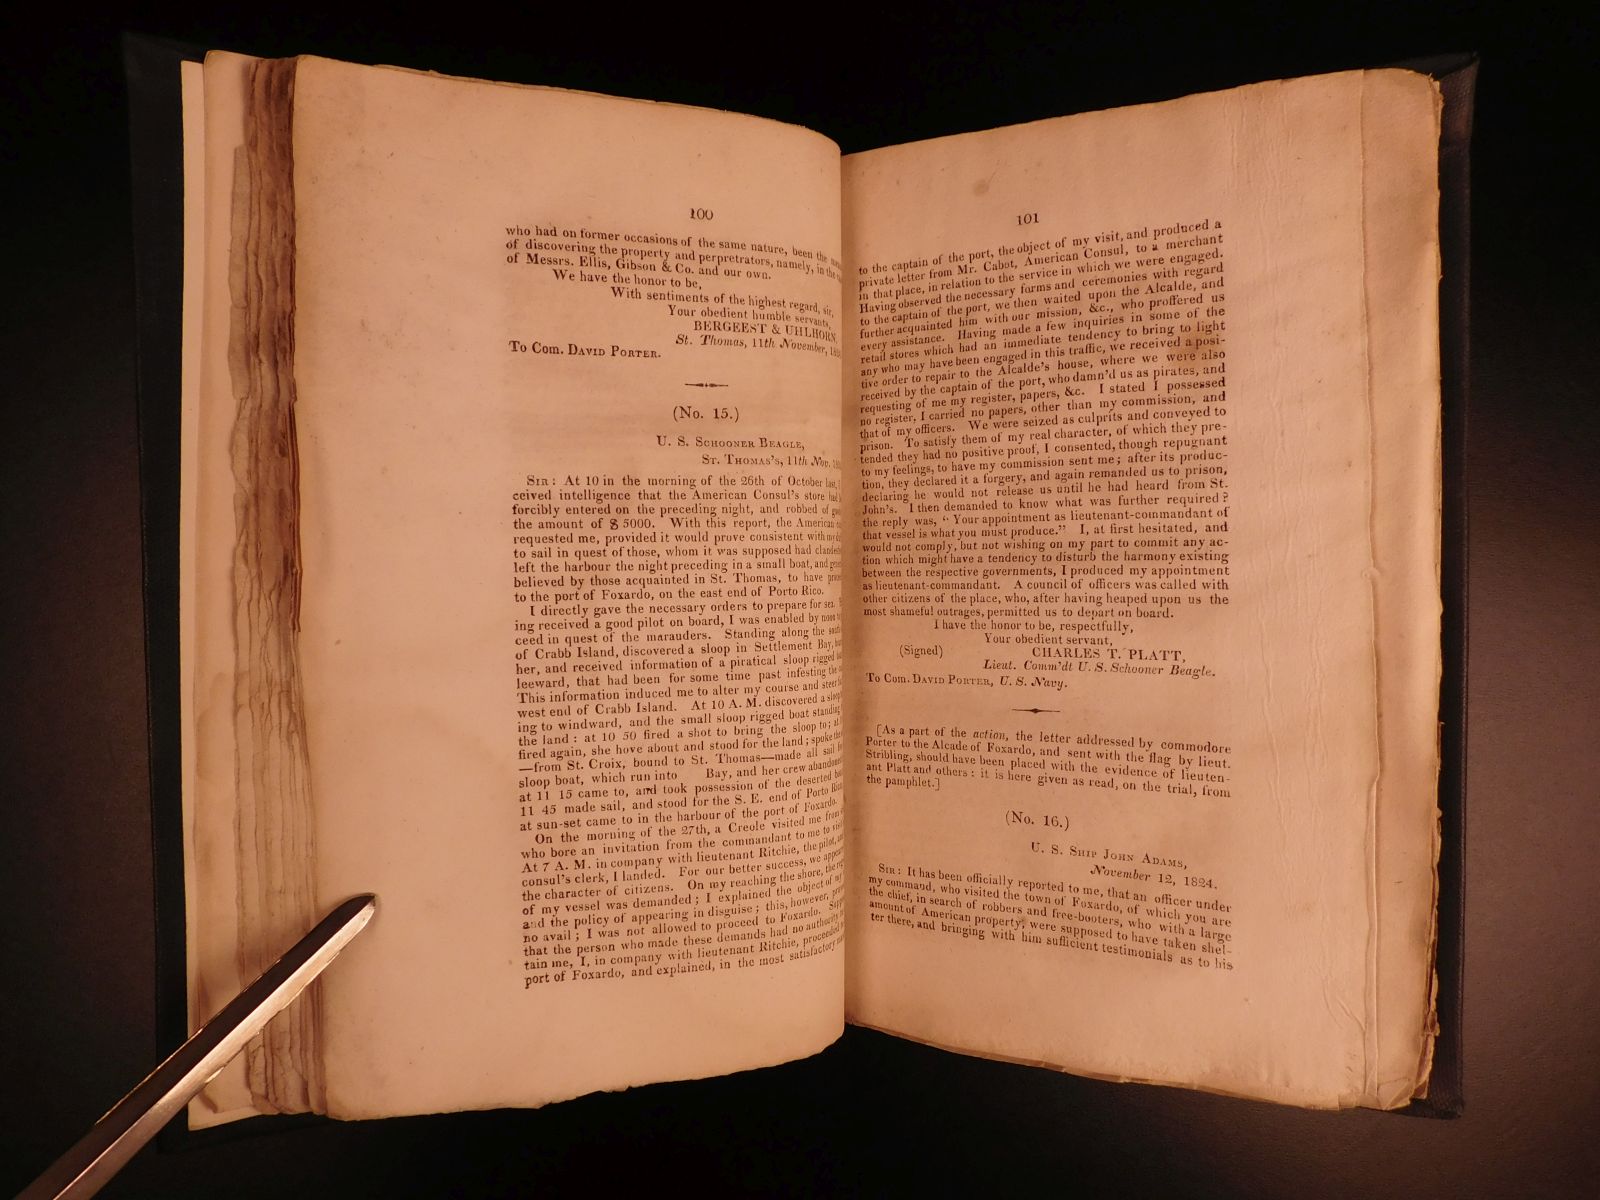 100
who had on former occasions of the same nature, been the
of discovering the property and perpretrators, namely, in the
of Messrs. Ellis, Gibson & Co. and our own.
We have the honor to be,
With sentiments of the highest regard, sir,
Your obedient humble servants,
BERGEEST & UHLHORN,
St. Thomas, 11th November,
To Com. DAVID PORTER.
(No. 15.)
U. S. SCHOONER BEAGLE,
ST. THOMAS'S, 11th Nov.
SIR: At 10 in the morning of the 26th of October last,
ceived intelligence that the American Consul's store had
forcibly entered on the preceding night, and robbed of
the amount of $ 5000. With this report, the American
requested me, provided it would prove consistent with my
to sail in quest of those, whom it was supposed had
left the harbour the night preceding in a small boat, and
believed by those acquainted in St. Thomas, to have
to the port of Foxardo, on the east end of Porto Rico.
I directly gave the necessary orders to prepare for sea.
ing received a good pilot on board, I was enabled by noon
ceed in quest of the marauders. Standing along the
of Crabb Island, discovered a sloop in Settlement Bay,
her, and received information of a piratical sloop rigged
leeward, that had been for some time past infesting the
This information induced me to alter my course and steer
west end of Crabb Island. At 10 A. M. discovered a sloop
ing to windward, and the small sloop rigged boat standing
the land: at 10 50 fired a shot to bring the sloop to;
fired again, she hove about and stood for the land; spoke the
—from St. Croix, bound to St. Thomas—made all sail
sloop boat, which run into Bay, and her crew abandoned
at 11 15 came to, and took possession of the deserted
11 45 made sail, and stood for the S. E. end of Porto Rico
at sun-set came to in the harbour of the port of Foxardo.
On the morning of the 27th, a Creole visited me from
who bore an invitation from the commandant to me to
At 7 A. M. in company with lieutenant Ritchie, the pilot,
consul's clerk, I landed. For our better success, we
the character of citizens. On my reaching the shore, the
of my vessel was demanded; I explained the object of
and the policy of appearing in disguise; this, however,
no avail; I was not allowed to proceed to Foxardo.
that the person who made these demands had no authority
tain me, I, in company with lieutenant Ritchie, proceeded
port of Foxardo, and explained, in the most satisfactory
101
to the captain of the port, the object of my visit, and produced a
private letter from Mr. Cabot, American Consul, to a merchant
in that place, in relation to the service in which we were engaged.
Having observed the necessary forms and ceremonies with regard
to the captain of the port, we then waited upon the Alcalde, and
further acquainted him with our mission, &c., who proffered us
every assistance. Having made a few inquiries in some of the
retail stores which had an immediate tendency to bring to light
any who may have been engaged in this traffic, we received a posi-
tive order to repair to the Alcalde's house, where we were also
received by the captain of the port, who damn'd us as pirates, and
requesting of me my register, papers, &c. I stated I possessed
no register, I carried no papers, other than my commission, and
that of my officers. We were seized as culprits and conveyed to
prison. To satisfy them of my real character, of which they pre-
tended they had no positive proof, I consented, though repugnant
to my feelings, to have my commission sent me; after its produc-
tion, they declared it a forgery, and again remanded us to prison,
declaring he would not release us until he had heard from St.
John's. I then demanded to know what was further required?
the reply was, "Your appointment as lieutenant-commandant of
that vessel is what you must produce." I, at first hesitated, and
would not comply, but not wishing on my part to commit any ac-
tion which might have a tendency to disturb the harmony existing
between the respective governments, I produced my appointment
as lieutenant-commandant. A council of officers was called with
other citizens of the place, who, after having heaped upon us the
most shameful outrages, permitted us to depart on board.
I have the honor to be, respectfully,
Your obedient servant,
(Signed) CHARLES T. PLATT,
Lieut. Comm'dt U. S. Schooner Beagle.
To Com. DAVID PORTER, U. S. Navy.
[As a part of the action, the letter addressed by commodore
Porter to the Alcade of Foxardo, and sent with the flag by lieut.
Stribling, should have been placed with the evidence of lieuten-
ant Platt and others: it is here given as read, on the trial, from
the pamphlet.]
(No. 16.)
U. S. SHIP JOHN ADAMS,
November 12, 1824.
SIR: It has been officially reported to me, that an officer under
my command, who visited the town of Foxardo, of which you are
the chief, in search of robbers and free-booters, who with a large
amount of American property, were supposed to have taken shel-
ter there, and bringing with him sufficient testimonials as to his